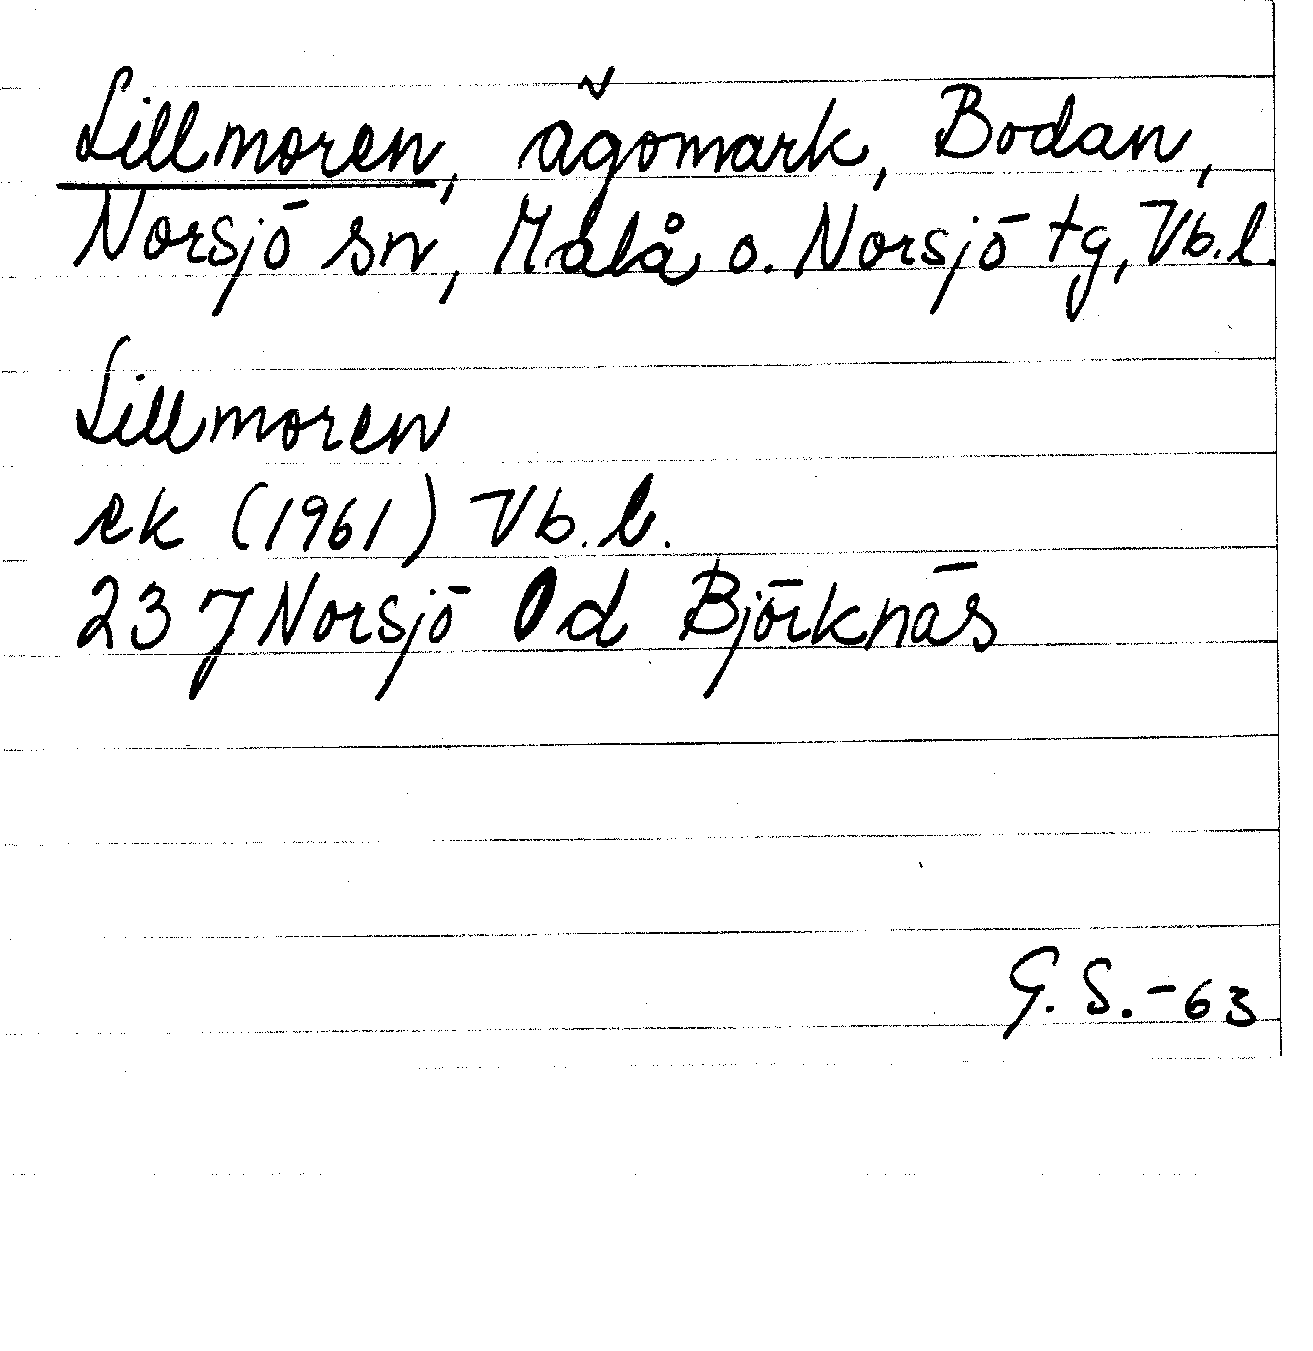 Lillmoren, ägomark, Bodan,
Norsjö sn, Malå o. Norsjö tg, Vb.l.
Lillmoren
ek (1961) Vb.l.
23 J Norsjö 0d Björknäs
G.S.-63